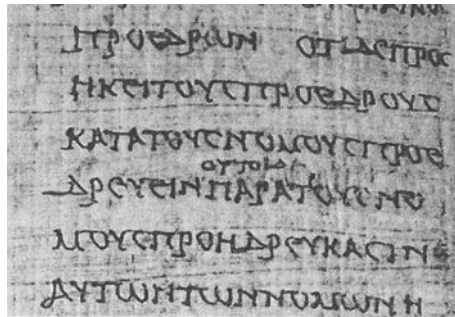 ΠΡΟΕΔΡΩΝ ΟΤΙΑϹΠΡΟϹ
ΗΚΕΙΤΟΥϹΠΡΟΕΔΡΟΥϹ
ΚΑΤΑΤΟΥϹΝΟΜΟΥϹΠΡΟΕ
ΟΥΤΟΙ
ΔΡΕΥΕΙΝΠΑΡΑΤΟΥϹΝΟ
ΜΟΥϹΠΡΟΗΔΡΕΥΚΑϹΙΝ
ΑΥΤΩΝΤΩΝΝΟΜΩΝΗ